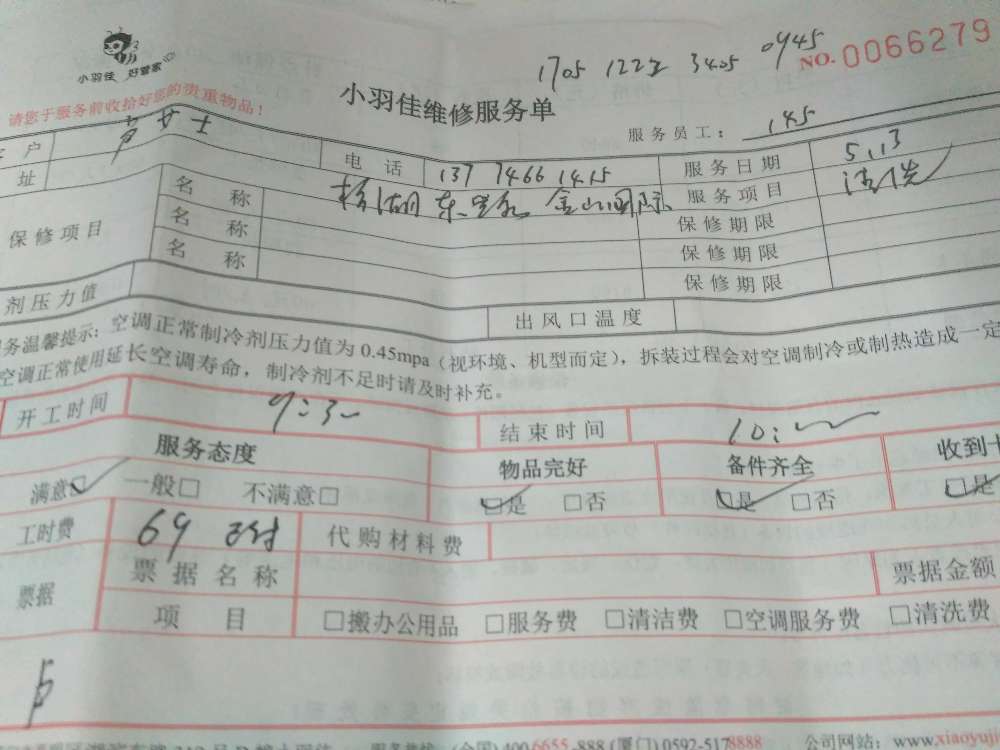 小羽佳 好管家
1705 1222 3405 0945
NO. 0066279
请您于服务前收拾好您的贵重物品！
小羽佳维修服务单
服务员工： 145
客户 卢女士 电话 137 7466 1415 服务日期 5.13
址 金山国际 服务项目 清洗
保修项目 名称 保修期限
名称 保修期限
名称 保修期限
剂压力值 出风口温度
务温馨提示：空调正常制冷剂压力值为0.45mpa（视环境、机型而定），拆装过程会对空调制冷或制热造成一定
空调正常使用延长空调寿命，制冷剂不足时请及时补充。
开工时间 9:3 结束时间 10:
服务态度 物品完好 备件齐全 收到
满意□ 一般□ 不满意□ □是 □否 □是 □否 □是
工时费 69 代购材料费
票据 票据名称 票据金额
项目 □搬办公用品 □服务费 □清洁费 □空调服务费 □清洗费
卢
(全国) 400 6655-888 (厦门) 0592-5178888 公司网站：www.xiaoyuji